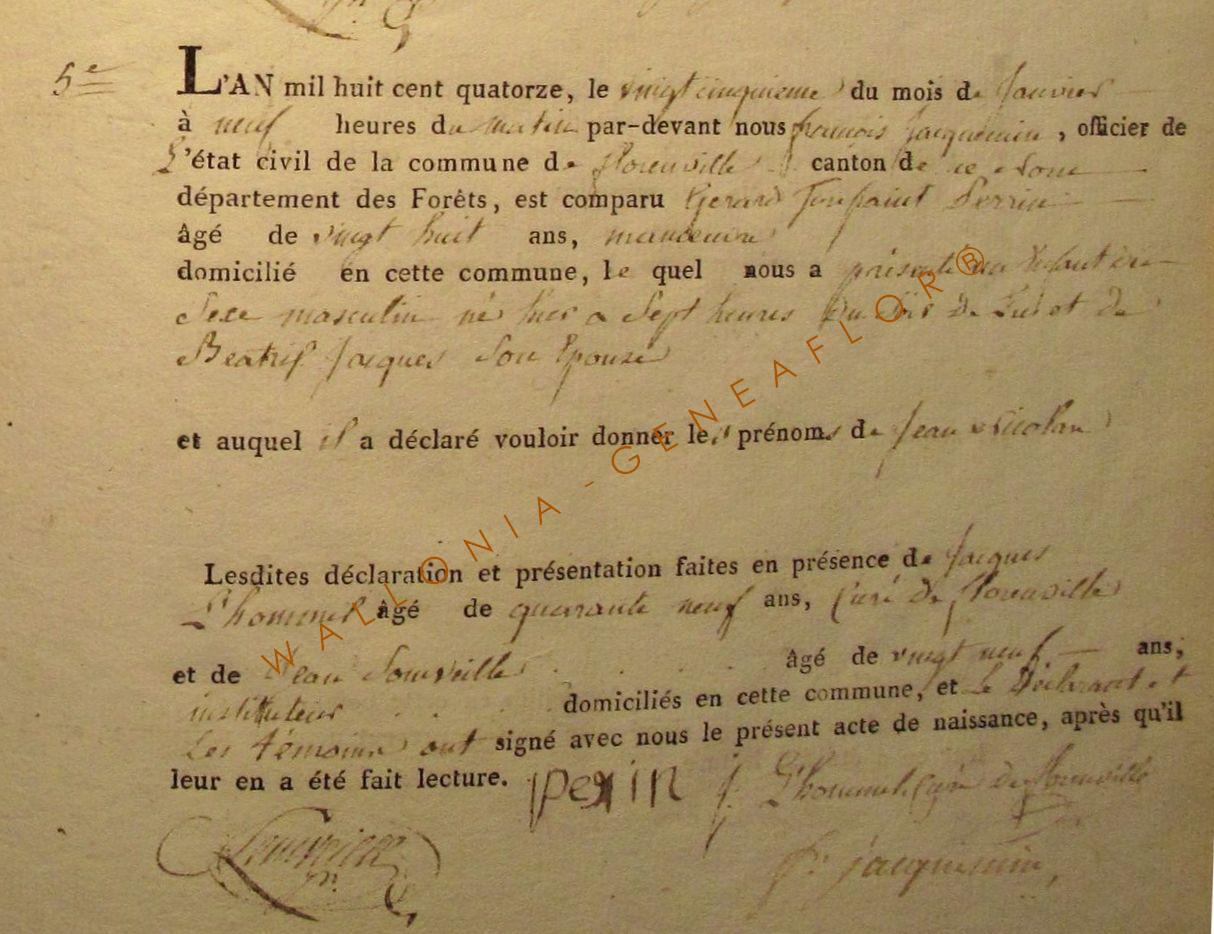 5e
L'AN mil huit cent quatorze, le vingt cinquieme du mois de Janvier
à neuf heures du matin par-devant nous françois jacquemin, officier de
L'état civil de la commune de florenville canton de ce nom
département des Forêts, est comparu Gerard Toussaint Perrin
âgé de vingt huit ans, manoeuvre
domicilié en cette commune, le quel nous a présenté un Enfant du
Sexe masculin né hier a Sept heures du soir de Lui et de
Beatrix Jacques Son Epouse
et auquel il a déclaré vouloir donner les prénoms de Jean Nicolas
Lesdites déclaration et présentation faites en présence de Jacques
L'hommel âgé de quarante neuf ans, Curé de florenville
et de Jean âgé de vingt neuf ans,
instituteur domiciliés en cette commune, et Le Déclarant et
Les témoins ont signé avec nous le présent acte de naissance, après qu'il
leur en a été fait lecture. perin j. L'hommel Curé de florenville
f. jacquemin
WALLONIA - GENEAFLOR®